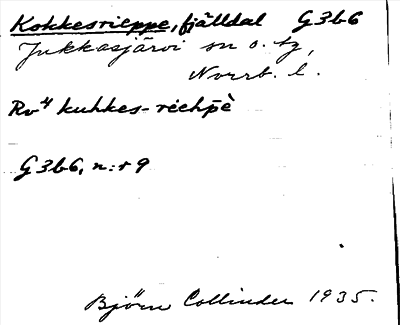 Kokkesrieppe, fjälldal G3b6
Jukkasjärvi sn o. tg,
Norrb. l.
Rv4 kuhkes-riehpè
G3b6, n:r 9
Björn Collinder 1935.